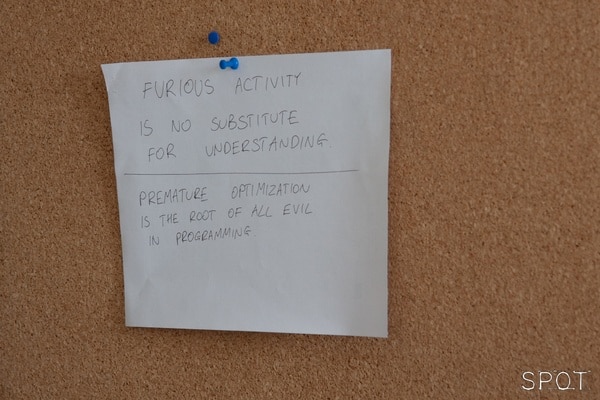 FURIOUS ACTIVITY
IS NO SUBSTITUTE
FOR UNDERSTANDING
PREMATURE OPTIMIZATION
IS THE ROOT OF ALL EVIL
IN PROGRAMMING
SPOT